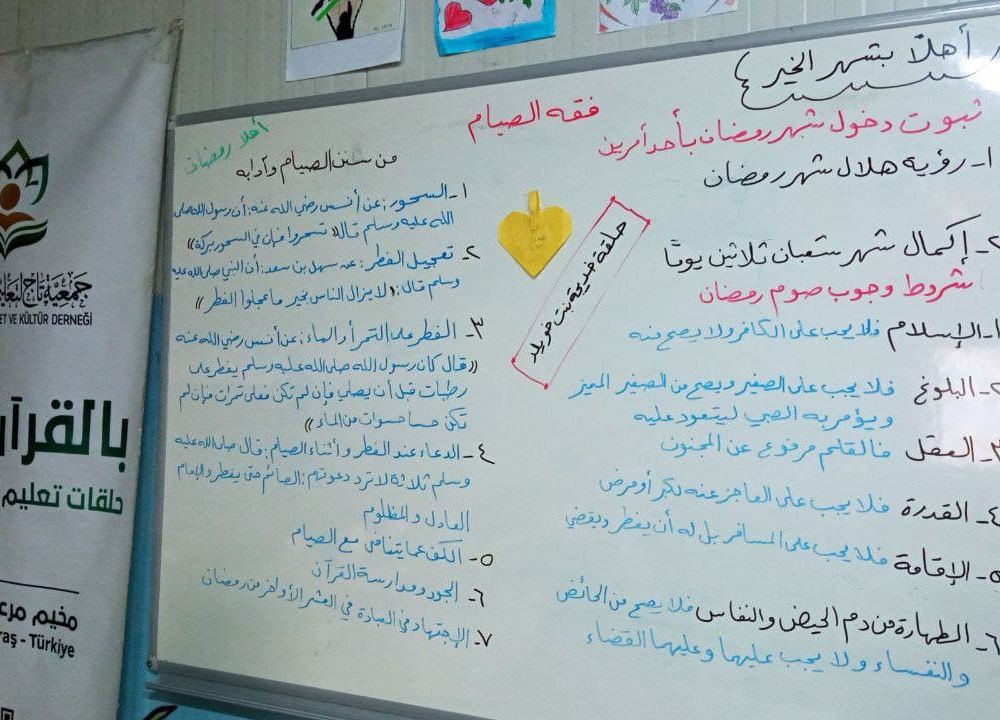 أهلاً بشهر الخير
فقه الصيام
ثبوت دخول شهر رمضان بأحد أمرين
١- رؤية هلال شهر رمضان
٢- إكمال شهر شعبان ثلاثين يومًا
شروط وجوب صوم رمضان
١- الإسلام فلا يجب على الكافر ولا يصح منه
٢- البلوغ فلا يجب على الصغير ويصح من الصغير المميز
ويؤمر به الصبي ليتعود عليه
٣- العقل فالقلم مرفوع عن المجنون
٤- القدرة فلا يجب على العاجز عنه لكبر أو مرض
٥- الإقامة فلا يجب على المسافر بل له أن يفطر ويقضي
٦- الطهارة من دم الحيض والنفاس فلا يصح من الحائض
والنفساء ولا يجب عليهما وعليهما القضاء
حلقة خديجة بنت خويلد
أهلا رمضان
من سنن الصيام وآدابه
١- السحور: عن أنس رضي الله عنه: أن رسول الله صلى
الله عليه وسلم قال (( تسحروا فإن في السحور بركة ))
٢- تعجيل الفطر: عن سهل بن سعد: أن النبي صلى الله عليه
وسلم قال: (( لا يزال الناس بخير ما عجلوا الفطر ))
٣- الفطر على التمر أو الماء: عن أنس رضي الله عنه
(( قال كان رسول الله صلى الله عليه وسلم يفطر على
رطبات قبل أن يصلي فإن لم تكن فعلى تمرات فإن لم
تكن حسا حسوات من الماء ))
٤- الدعاء عند الفطر وأثناء الصيام: قال صلى الله عليه
وسلم ثلاثة لا ترد دعوتهم: الصائم حتى يفطر والإمام
العادل والمظلوم
٥- الكف عما يتنافى مع الصيام
٦- الجود ومدارسة القرآن
٧- الإجتهاد في العبادة في العشر الأواخر من رمضان
جمعية تاج لتعليم
ET VE KÜLTÜR DERNEĞİ
بالقرآن
حلقات تعليم
مخيم مرع
raş - Türkiye